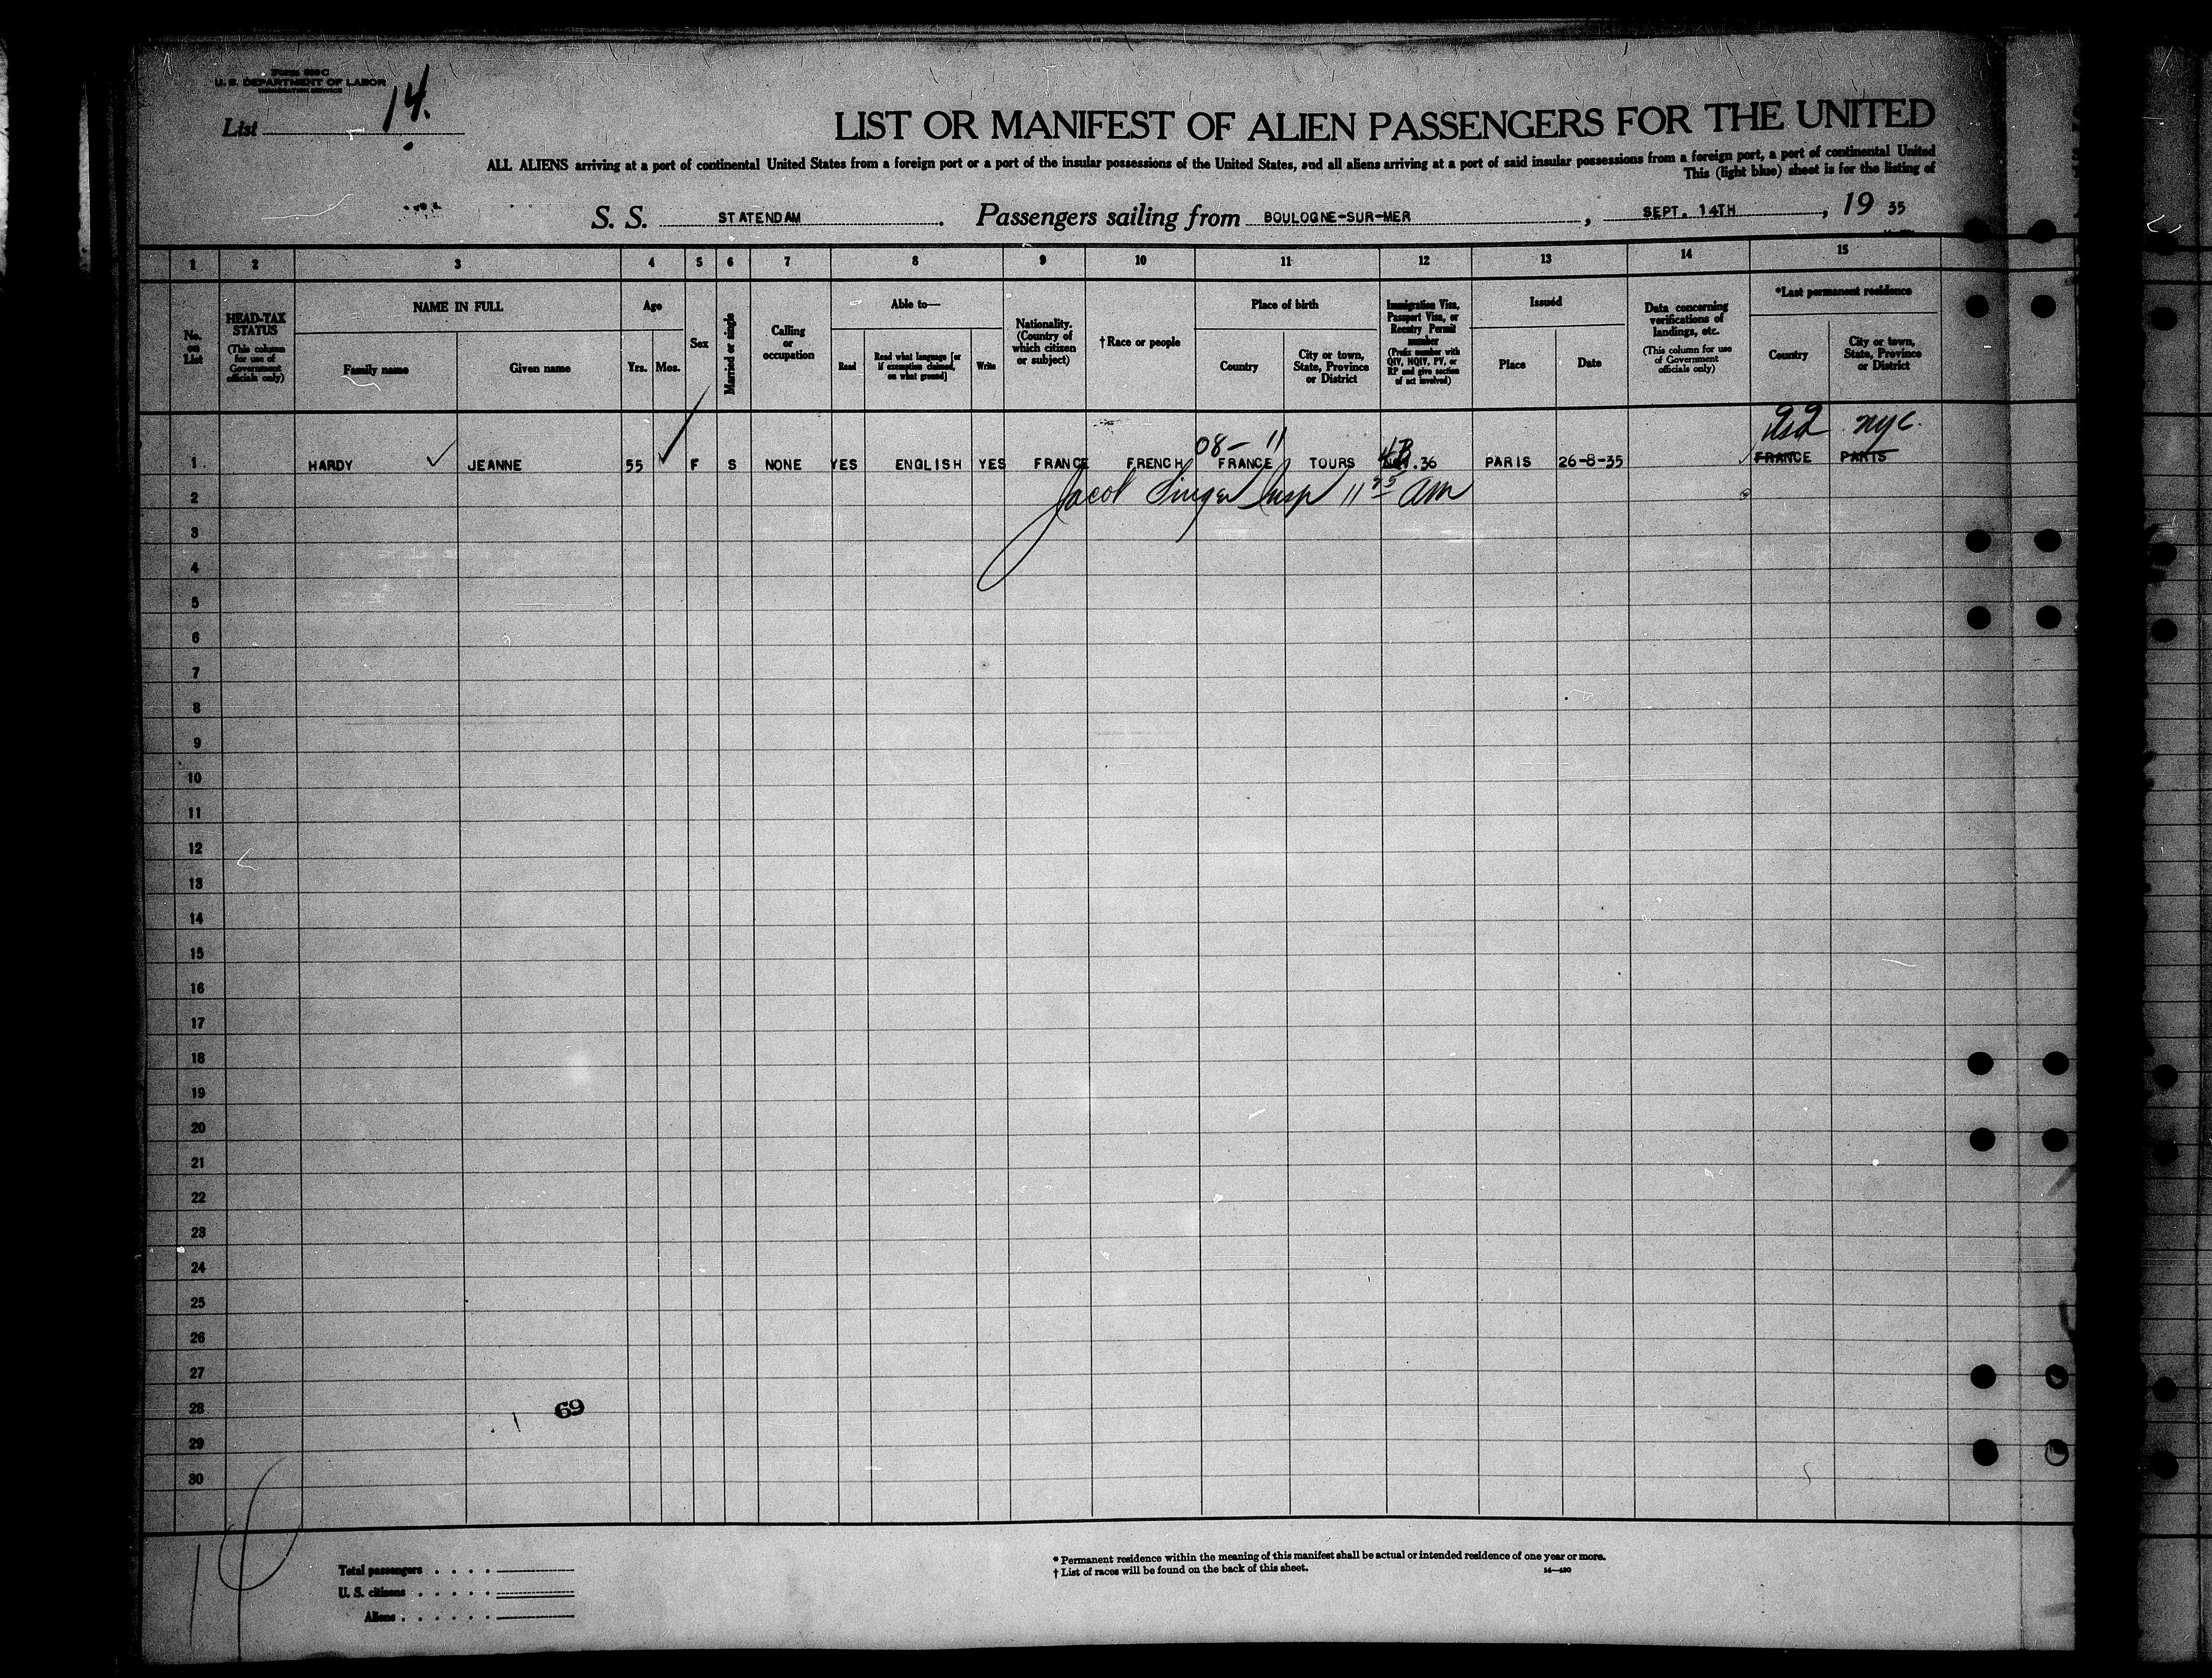 U. S. DEPARTMENT OF LABOR
List 14.
LIST OR MANIFEST OF ALIEN PASSENGERS FOR THE UNITED
ALL ALIENS arriving at a port of continental United States from a foreign port or a port of the insular possessions of the United States, and all aliens arriving at a port of said insular possessions from a foreign port, a port of continental United
This (light blue) sheet is for the listing of
S. S. STATENDAM. Passengers sailing from BOULOGNE-SUR-MER, SEPT. 14TH, 19 35
1 2 3 4 5 6 7 8 9 10 11 12 13 14 15
No. on List
HEAD-TAX STATUS
(This column for use of Government officials only)
NAME IN FULL
Family name
Given name
Age
Yrs.
Mos.
Sex
Married or single
Calling or occupation
Able to—
Read
Read what language [or if exemption claimed, on what ground]
Write
Nationality. (Country of which citizen or subject)
† Race or people
Place of birth
Country
City or town, State, Province or District
Immigration Visa, Passport Visa, or Reentry Permit number
(Prefix number with QIV, NQIV, PV, or RP and give section of act involved)
Issued
Place
Date
Data concerning verifications of landings, etc.
(This column for use of Government officials only)
*Last permanent residence
Country
City or town, State, Province or District
nyc.
08- 11
1 HARDY JEANNE 55 F S NONE YES ENGLISH YES FRANCE FRENCH FRANCE TOURS .36 PARIS 26-8-35 FRANCE PARIS
Jacob Singer Insp 11 AM
2
3
4
5
6
7
8
9
10
11
12
13
14
15
16
17
18
19
20
21
22
23
24
25
26
27
28
69
29
30
Total passengers
U. S. citizens
Aliens
* Permanent residence within the meaning of this manifest shall be actual or intended residence of one year or more.
† List of races will be found on the back of this sheet.
14—430